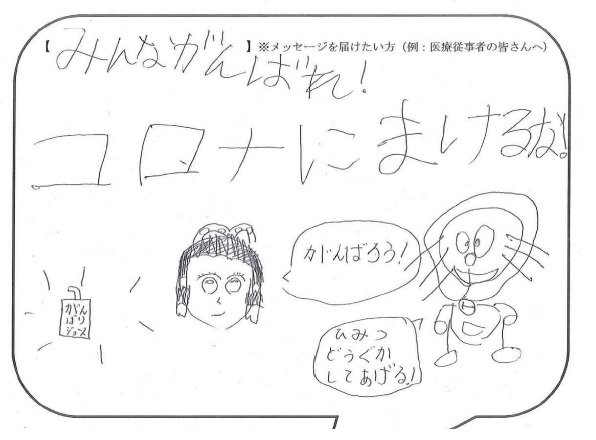 【 】※メッセージを届けたい方（例：医療従事者の皆さんへ）
みんながんばれ！
コロナにまけるな！
がんばろう！
ひみつ
どうぐか
してあげる！
がん
ばり
ジュース